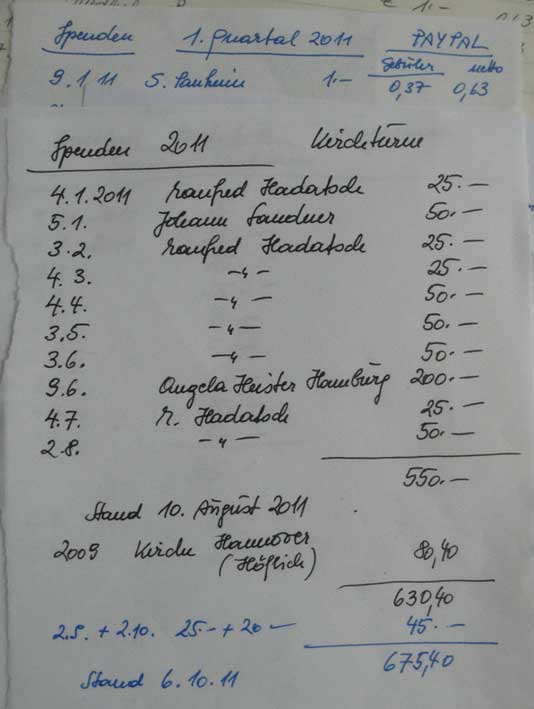 Spenden 1. Quartal 2011 PAYPAL
Gebühr netto
9.1.11 S. 1.– 0,37 0,63
Spenden 2011 Kirchtürme
4.1.2011 Manfred Hadatsch 25.–
5.1. Johann Sandner 50.–
3.2. Manfred Hadatsch 25.–
4.3. –"– 25.–
4.4. –"– 50.–
3.5. –"– 50.–
3.6. –"– 50.–
9.6. Angela Heister Hamburg 200.–
4.7. M. Hadatsch 25.–
2.8. –"– 50.–
550.–
Stand 10. August 2011
2009 Kirche Hannover 80,40
(Höflich)
630,40
2.9. + 2.10. 25.– + 20 – 45.–
675,40
Stand 6.10.11